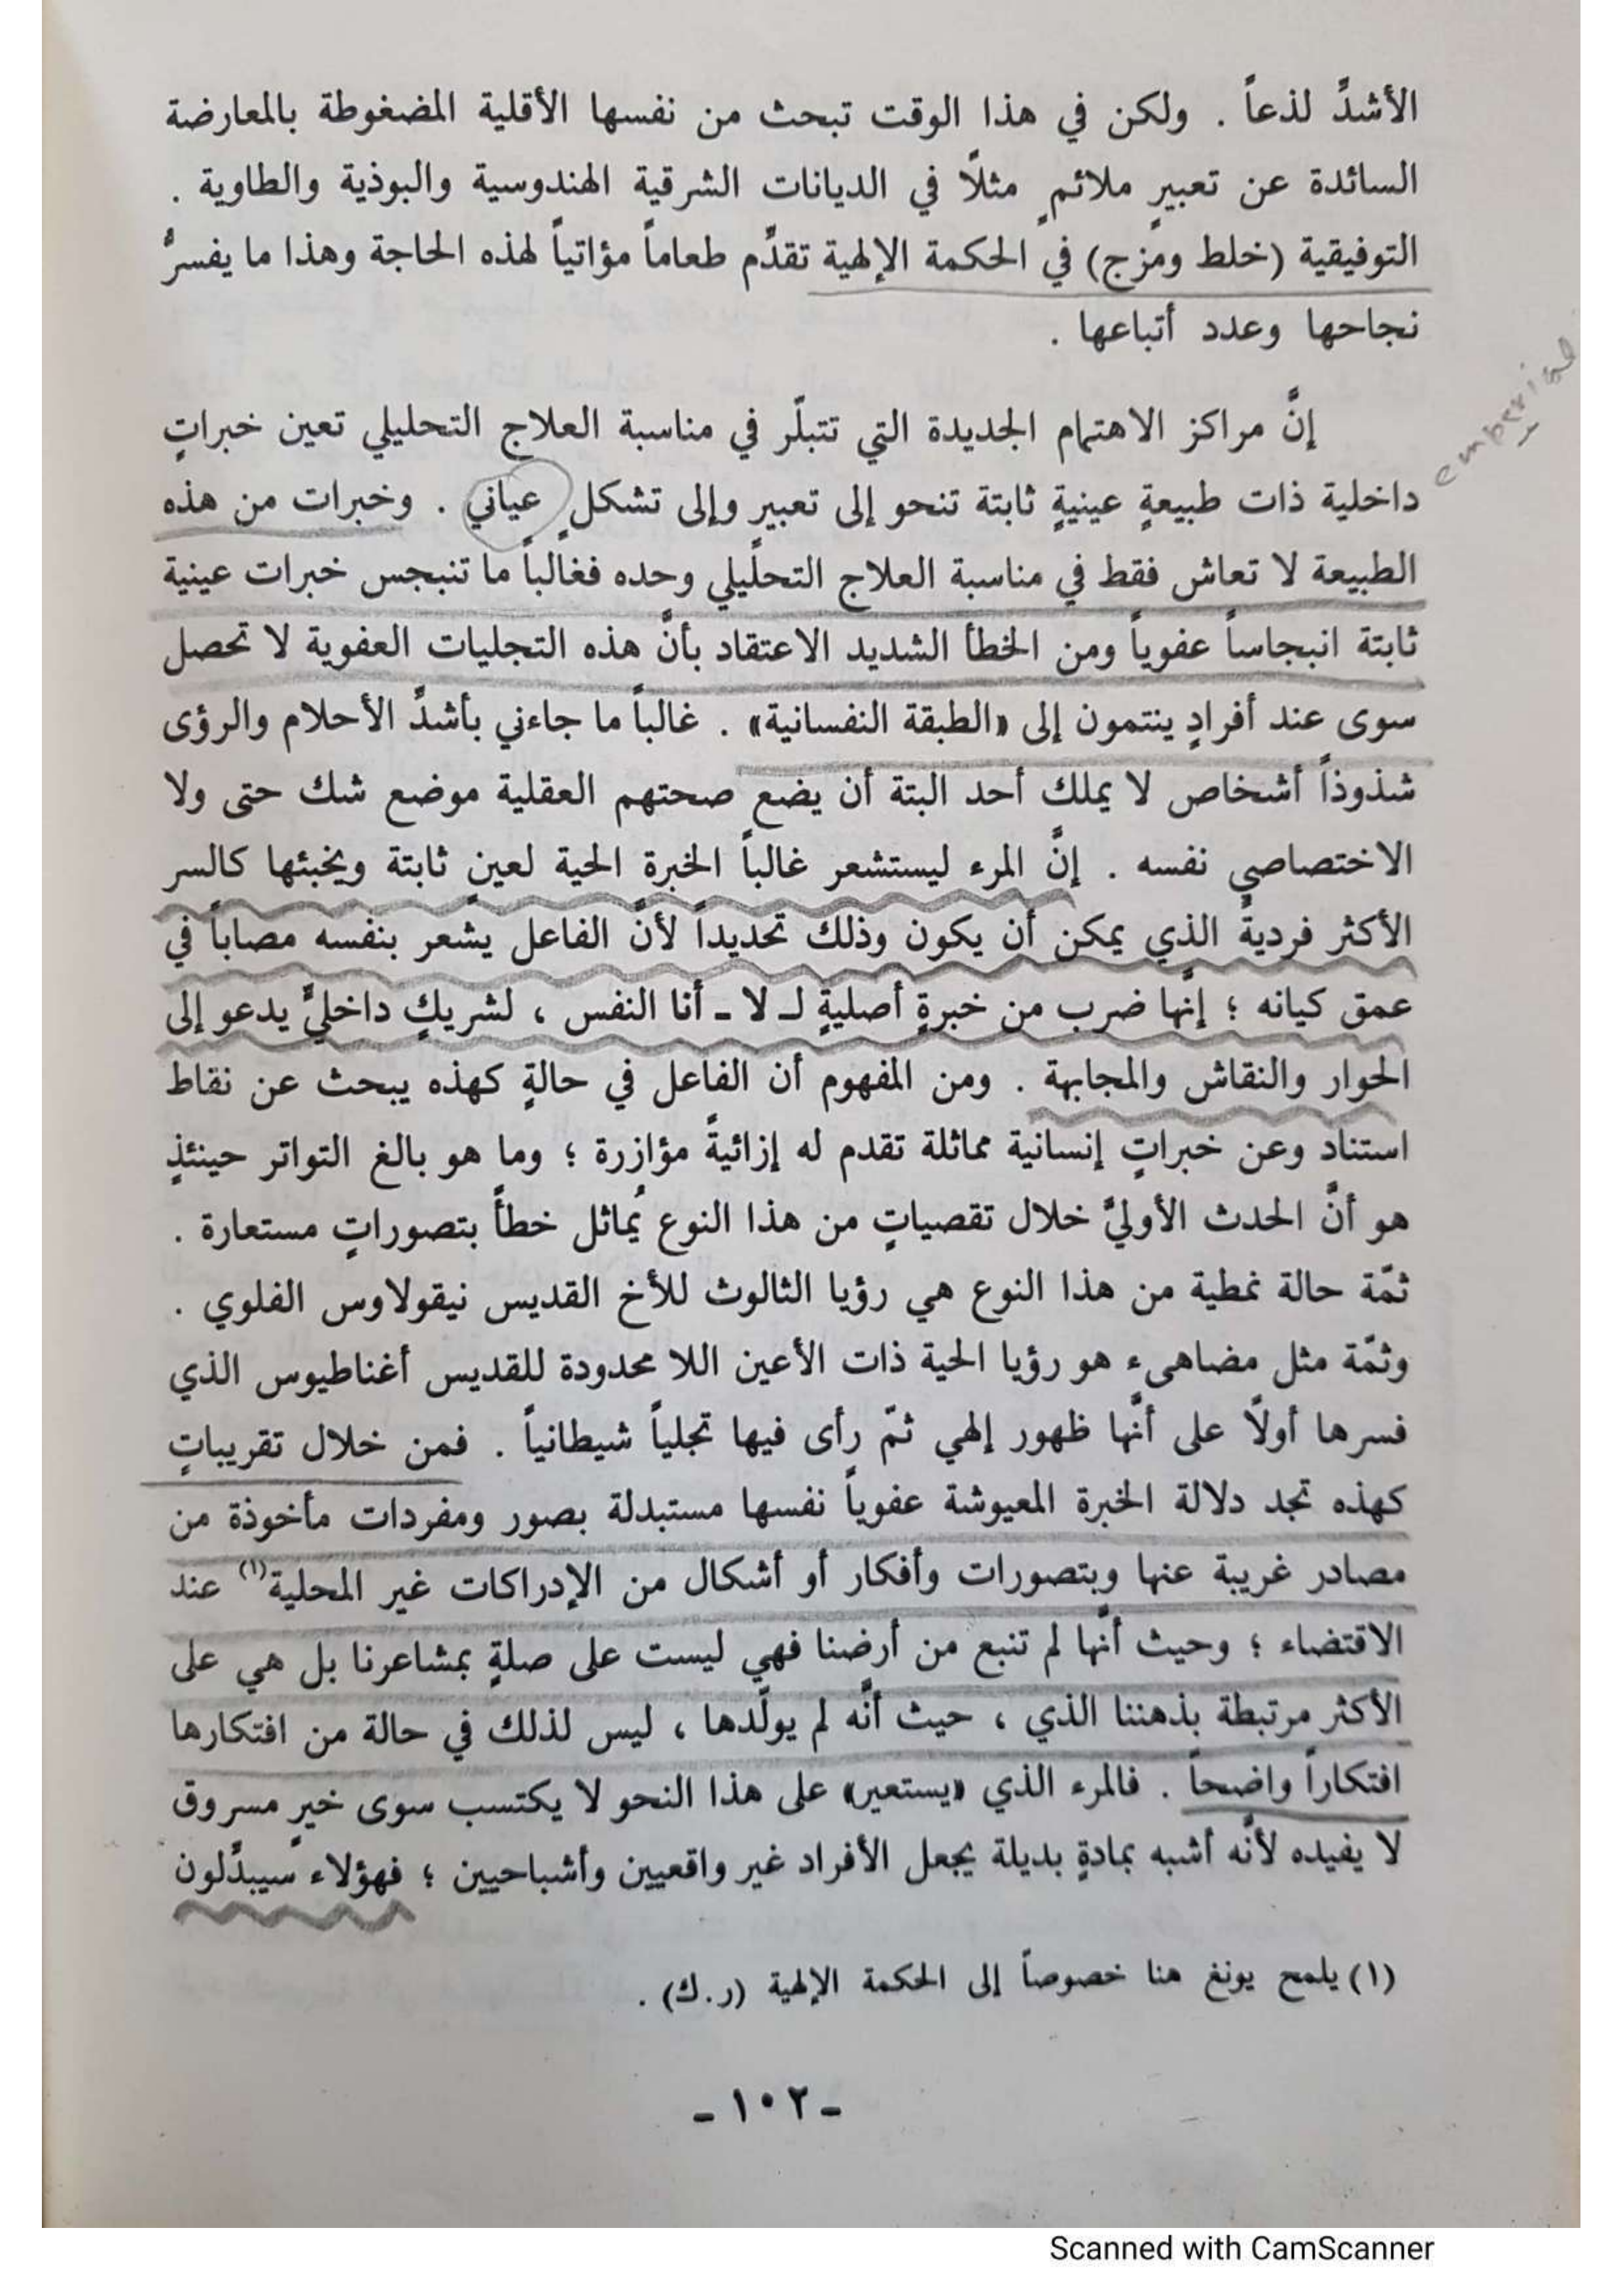 الأشدَّ لذعاً . ولكن في هذا الوقت تبحث من نفسها الأقلية المضغوطة بالمعارضة
السائدة عن تعبيرٍ ملائمٍ مثلًا في الديانات الشرقية الهندوسية والبوذية والطاوية .
التوفيقية (خلط ومزج) في الحكمة الإلهية تقدَّم طعاماً مؤاتياً لهذه الحاجة وهذا ما يفسرُّ
نجاحها وعدد أتباعها .
إنَّ مراكز الاهتمام الجديدة التي تتبلّر في مناسبة العلاج التحليلي تعين خبراتٍ
emberial
داخلية ذات طبيعةٍ عينيةٍ ثابتة تنحو إلى تعبيرٍ وإلى تشكلٍ عياني . وخبرات من هذه
الطبيعة لا تعاش فقط في مناسبة العلاج التحليلي وحده فغالباً ما تنبجس خبرات عينية
ثابتة انبجاساً عفوياً ومن الخطأ الشديد الاعتقاد بأنَّ هذه التجليات العفوية لا تحصل
سوى عند أفرادٍ ينتمون إلى «الطبقة النفسانية» . غالباً ما جاءني بأشدَّ الأحلام والرؤى
شذوذاً أشخاص لا يملك أحد البتة أن يضع صحتهم العقلية موضع شك حتى ولا
الاختصاصي نفسه . إنَّ المرء ليستشعر غالباً الخبرة الحية لعينٍ ثابتة ويخبئها كالسر
الأكثر فرديةً الذي يمكن أن يكون وذلك تحديداً لأنَّ الفاعل يشعر بنفسه مصاباً في
عمق كيانه ؛ إنَّها ضرب من خبرةٍ أصليةٍ لـ لا ـ أنا النفس ، لشريكٍ داخليٍّ يدعو إلى
الحوار والنقاش والمجابهة . ومن المفهوم أن الفاعل في حالةٍ كهذه يبحث عن نقاط
استناد وعن خبراتٍ إنسانية مماثلة تقدم له إزائيةً مؤازرة ؛ وما هو بالغ التواتر حينئذٍ
هو أنَّ الحدث الأوليَّ خلال تقصياتٍ من هذا النوع يُماثل خطأً بتصوراتٍ مستعارة .
ثمّة حالة نمطية من هذا النوع هي رؤيا الثالوث للأخ القديس نيقولاوس الفلوي .
وثمّة مثل مضاهىء هو رؤيا الحية ذات الأعين اللا محدودة للقديس أغناطيوس الذي
فسرها أولًا على أنَّها ظهور إلهي ثمّ رأى فيها تجلياً شيطانياً . فمن خلال تقريباتٍ
كهذه تجد دلالة الخبرة المعيوشة عفوياً نفسها مستبدلة بصور ومفردات مأخوذة من
مصادر غريبة عنها وبتصورات وأفكار أو أشكال من الإدراكات غير المحلية(١) عند
الاقتضاء ؛ وحيث أنَّها لم تنبع من أرضنا فهي ليست على صلةٍ بمشاعرنا بل هي على
الأكثر مرتبطة بذهننا الذي ، حيث أنَّه لم يولّدها ، ليس لذلك في حالة من افتكارها
افتكاراً واضحاً . فالمرء الذي «يستعير» على هذا النحو لا يكتسب سوى خيرٍ مسروق
لا يفيده لأنَّه أشبه بمادةٍ بديلة يجعل الأفراد غير واقعيين وأشباحيين ؛ فهؤلاء سيبدَّلون
(١) يلمح يونغ هنا خصوصاً إلى الحكمة الإلهية (ر.ك) .
ـ ١٠٢ ـ
Scanned with CamScanner